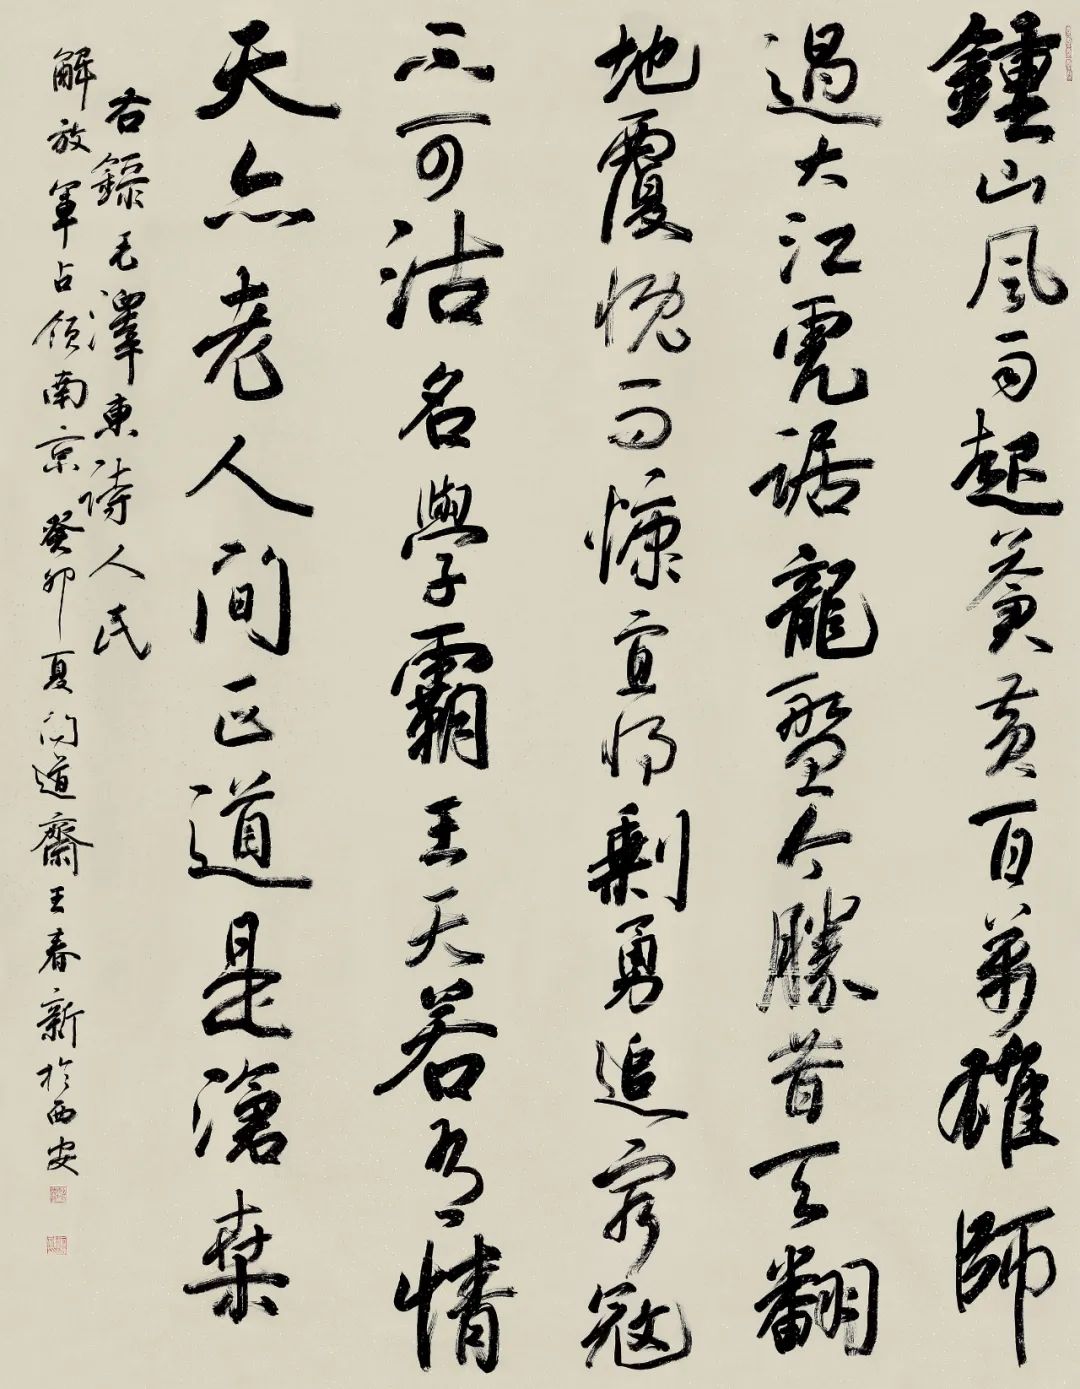 鍾山風雨起蒼黃百萬雄師
過大江虎踞龍盤今勝昔天翻
地覆慨而慷宜將剩勇追窮寇
不可沽名學霸王天若有情
天亦老人間正道是滄桑
右錄毛澤東詩人民
解放軍占領南京癸卯夏問道齋王春新於西安